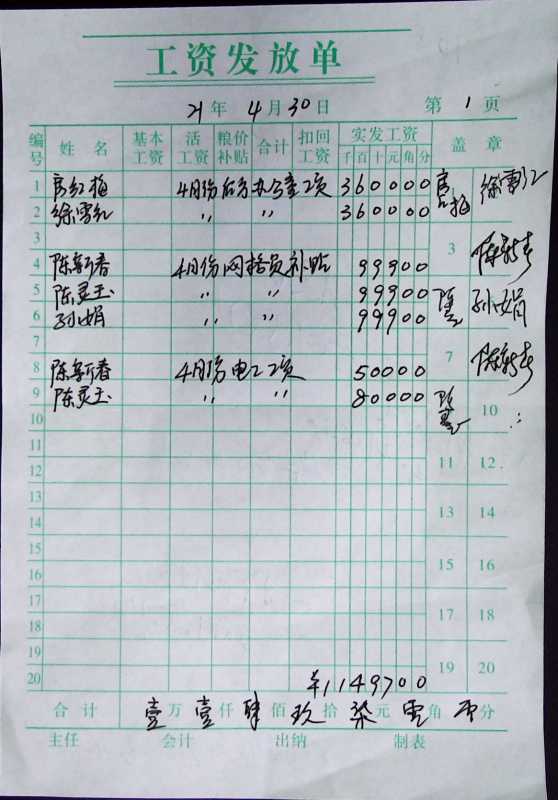 工资发放单
21年 4月30日 第 1 页
编号 姓名 基本工资 活工资 粮价补贴 合计 扣回工资 实发工资 千百十元角分 盖章
1 房红梅 4月份后方办公室工资 360000
2 徐雪红 〃 〃 360000 徐雪红
3 3
4 陈新春 4月份网格员补贴 99900 陈新春
5 陈灵玉 〃 〃 99900
6 孙娟 〃 〃 99900 孙娟
7 7
8 陈新春 4月份电工工资 50000 陈新春
9 陈灵玉 〃 〃 80000
10 10
11 11 12
12
13 13 14
14
15 15 16
16
17 17 18
18
19 19 20
20 ¥1149700
合计 壹万壹仟肆佰玖拾柒元零角零分
主任 会计 出纳 制表